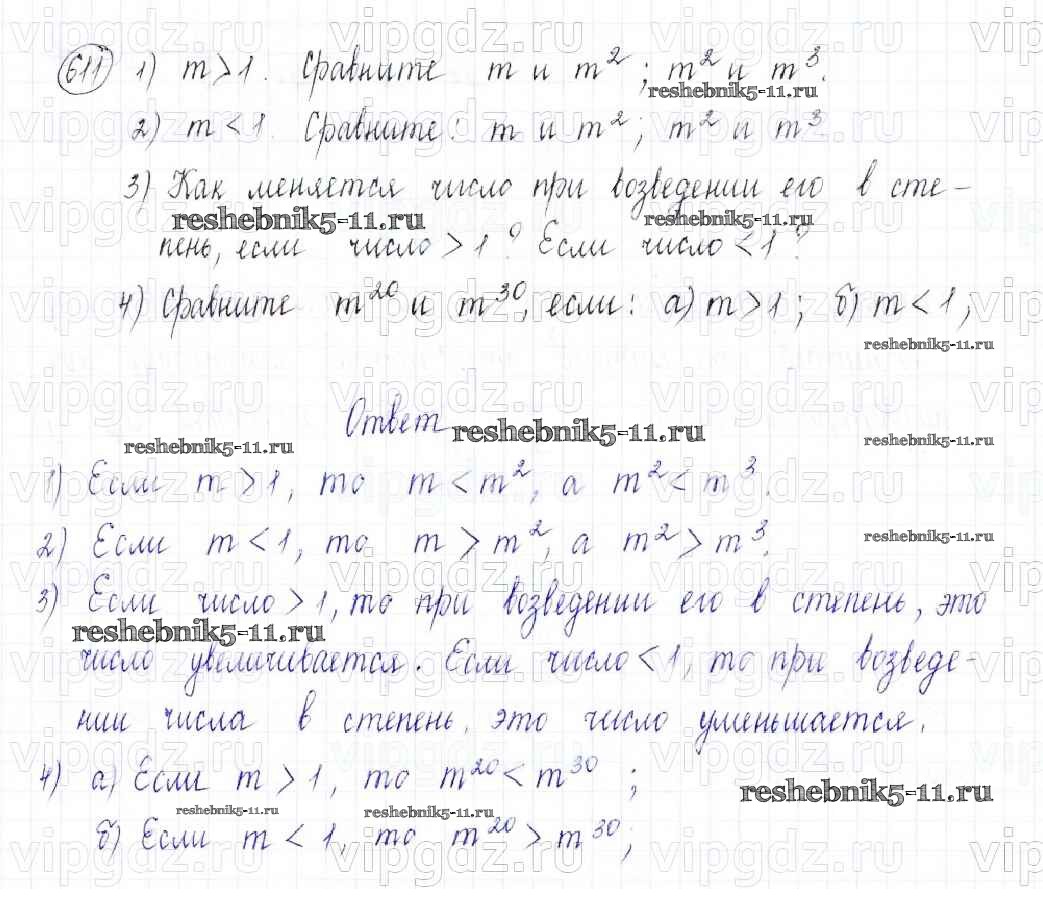 611 1) m > 1. Сравните m и m²; m² и m³.
reshebnik5-11.ru
2) m < 1. Сравните: m и m²; m² и m³.
3) Как меняется число при возведении его в сте-
reshebnik5-11.ru reshebnik5-11.ru
пень, если число > 1? Если число < 1?
4) Сравните m²⁰ и m³⁰, если: а) m > 1; б) m < 1;
reshebnik5-11.ru
Ответ
reshebnik5-11.ru reshebnik5-11.ru reshebnik5-11.ru
1) Если m > 1, то m < m², а m² < m³.
2) Если m < 1, то m > m², а m² > m³.
reshebnik5-11.ru
3) Если число > 1, то при возведении его в степень, это
reshebnik5-11.ru
число увеличивается. Если число < 1, то при возведе-
нии числа в степень, это число уменьшается.
4) а) Если m > 1, то m²⁰ < m³⁰ ;
reshebnik5-11.ru
reshebnik5-11.ru reshebnik5-11.ru
б) Если m < 1, то m²⁰ > m³⁰;
vipgdz.ru vipgdz.ru vipgdz.ru vip